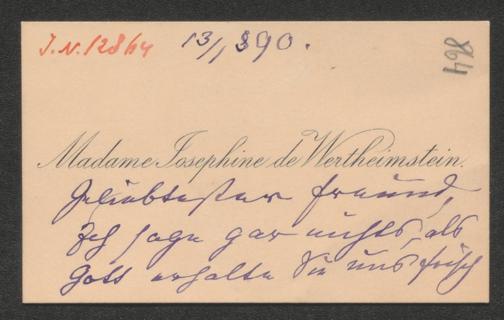 J.N. 128614 13/1, 890.
864
Madame Josephine de Wertheimstein.
Geliebtester Freund,
Ich sage gar nichts, als
Gott erhalte Sie uns frisch